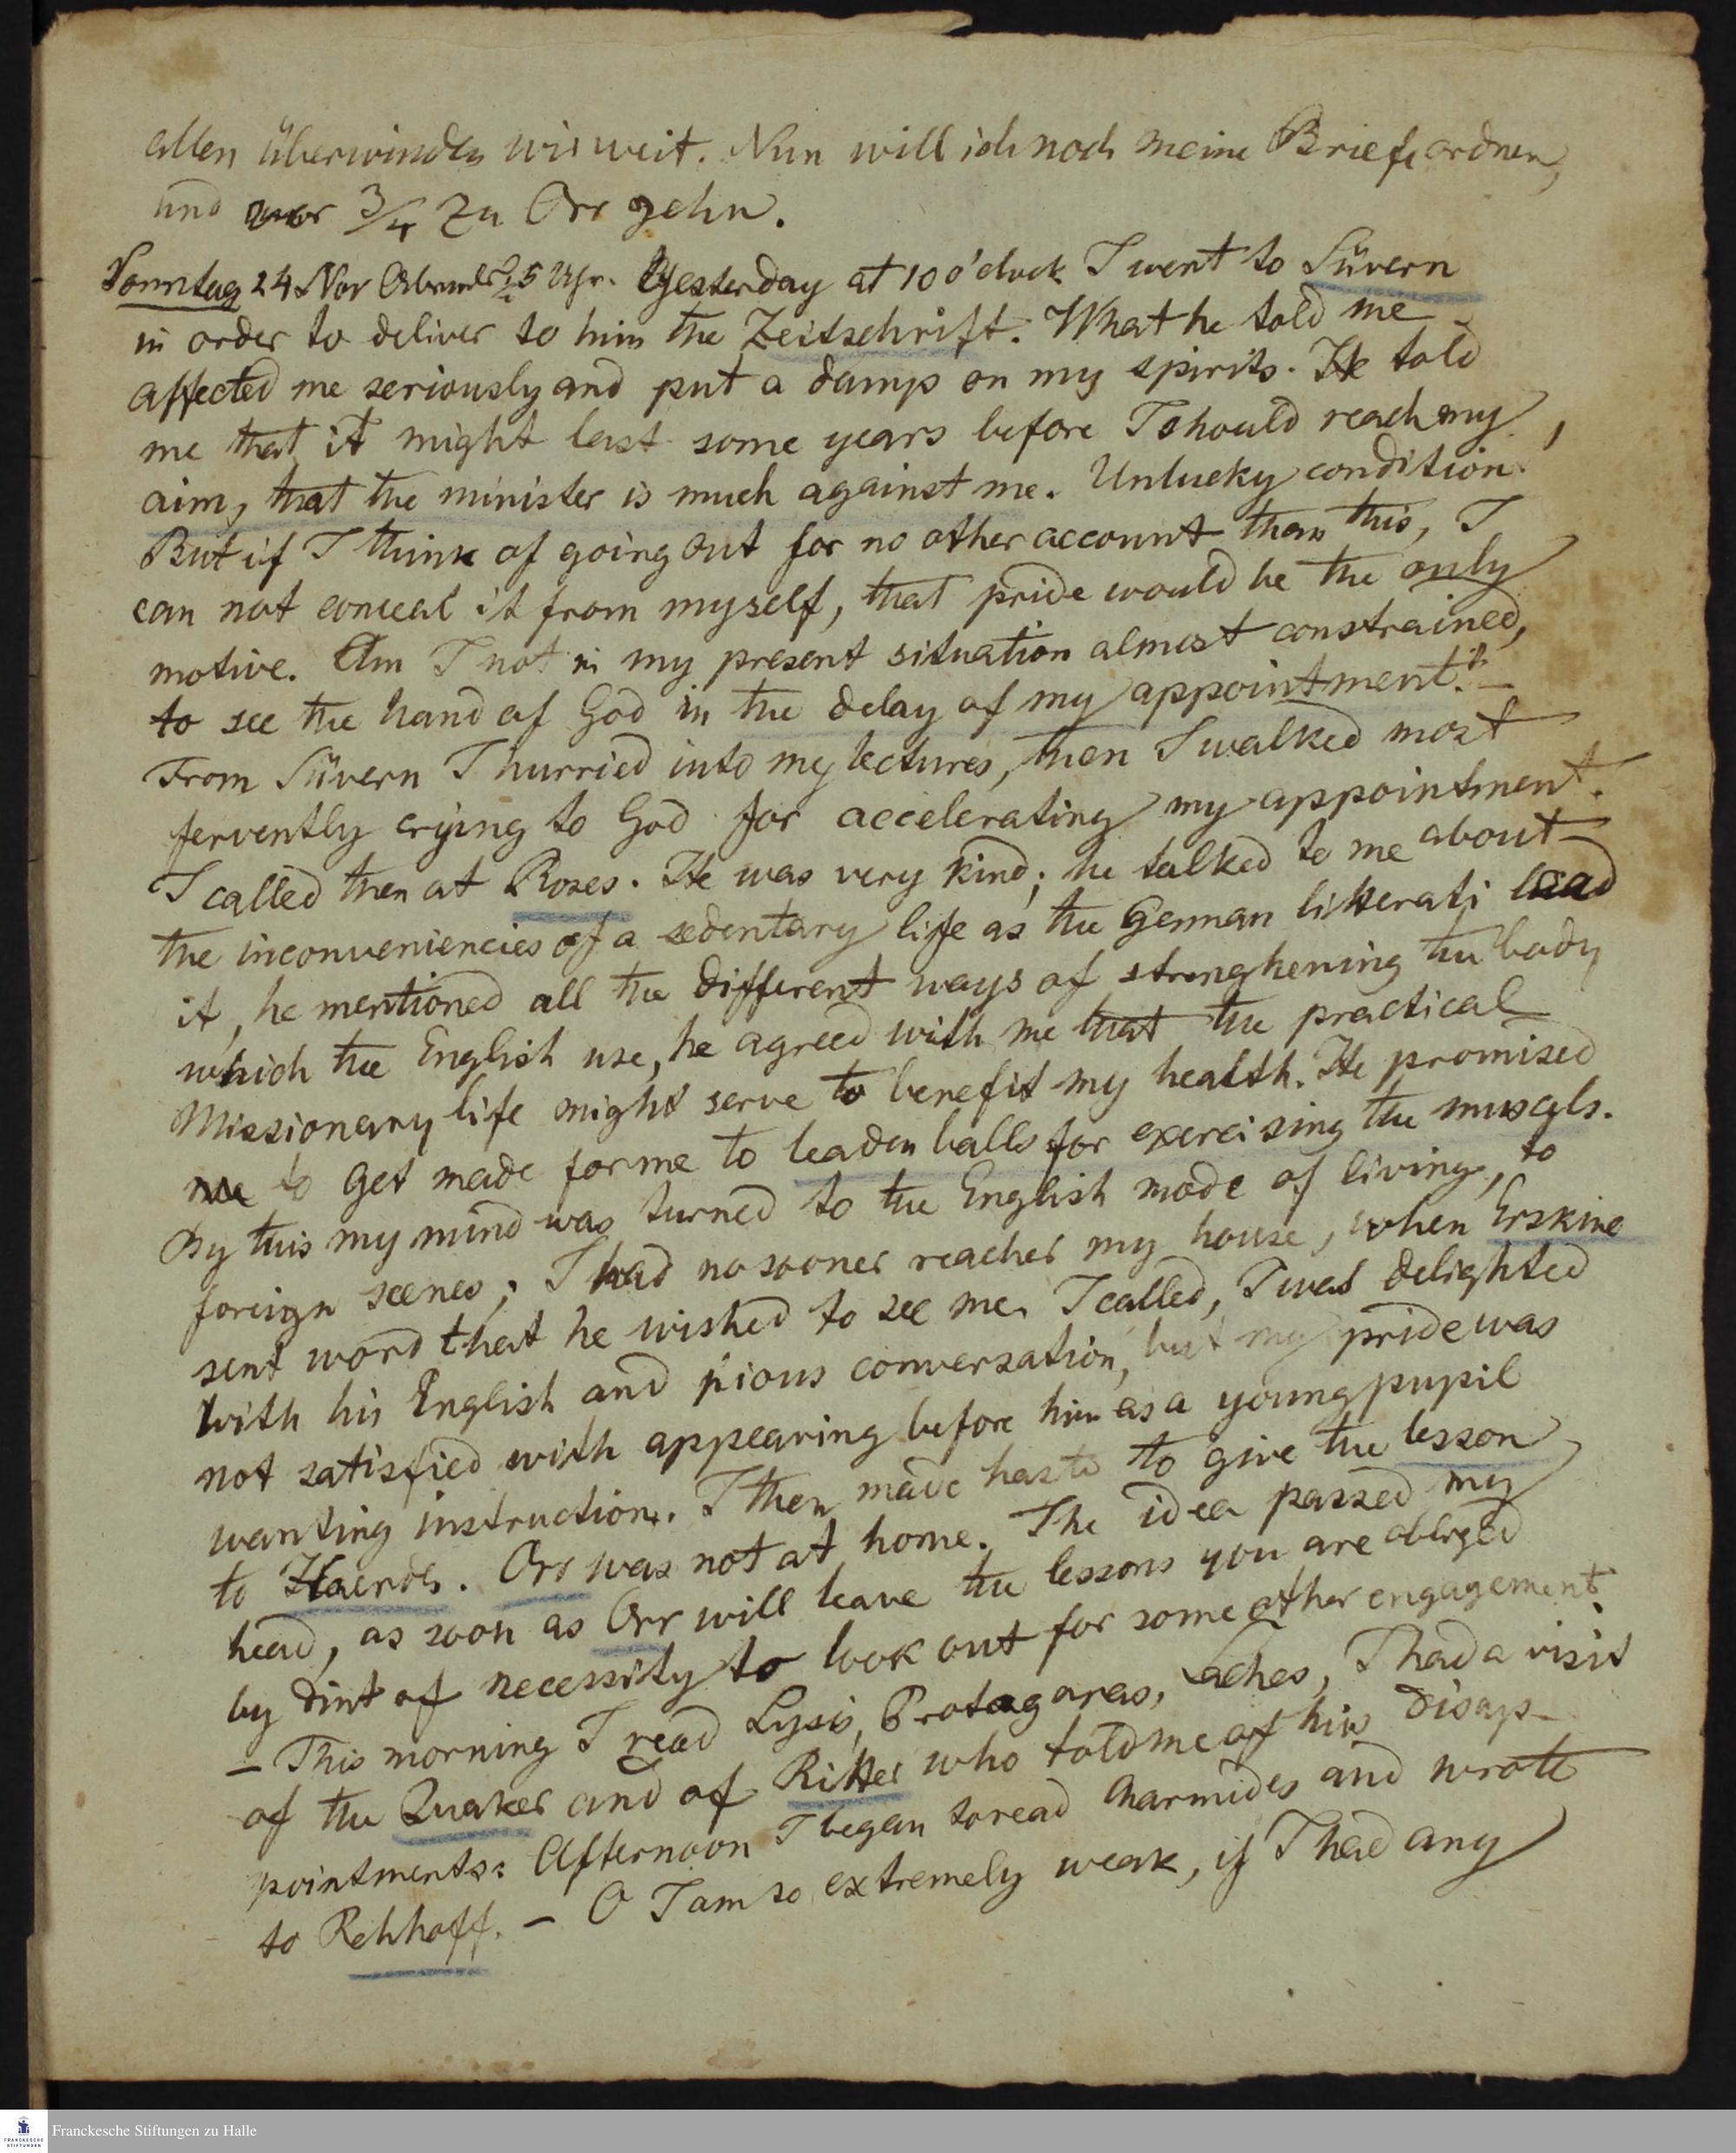 allen überwinden wir weit. Nun will ich noch meine Briefe ordnen,
und vor 3/4 zu Orr gehn.
Sonntag 24 Nov Abends 5 Uhr. Yesterday at 10 o'clock I went to Süvern
in order to deliver to him the Zeitschrift. What he told me
affected me seriously and put a damp on my spirits. He told
me that it might last some years before I should reach my
aim, that the minister is much against me. Unlucky condition!
But if I think of going out for no other account than this, I
can not conceal it from myself, that pride would be the only
motive. Am I not in my present situation almost constrained,
to see the hand of God in the delay of my appointment? –
From Süvern I hurried into my lectures, then I walked most
fervently crying to God for accelerating my appointment.
I called then at Roses. He was very kind; he talked to me about
the inconveniencies of a sedentary life as the German litterati lead
it, he mentioned all the different ways of strenghening the body
which the English use, he agreed with me that the practical
Missionary life might serve to benefit my health. He promised
me to get made for me to leaden balls for exercising the muscyls.
By this my mind was turned to the English mode of living, to
foreign scenes; I had no sooner reacher my house, when Erskine
sent word that he wished to see me. I called, I was delighted
with his English and pious conversation, but my pride was
not satisfied with appearing before him as a young pupil
wanting instruction. I then made haste to give the lesson
to Haende. Orr was not at home. The idea passed my
head, as soon as Orr will leave the lessons you are obliged
by dint of necessity to look out for some other engagement.
– This morning I read Lysis, Protagoras, Laches, I had a visit
of the Quaker and of Ritter who told me of his disap-
pointments: Afternoon I began to read Charmides and wrote
to Rehhoff. – O I am so extremely weak, if I had any
Franckesche Stiftungen zu Halle